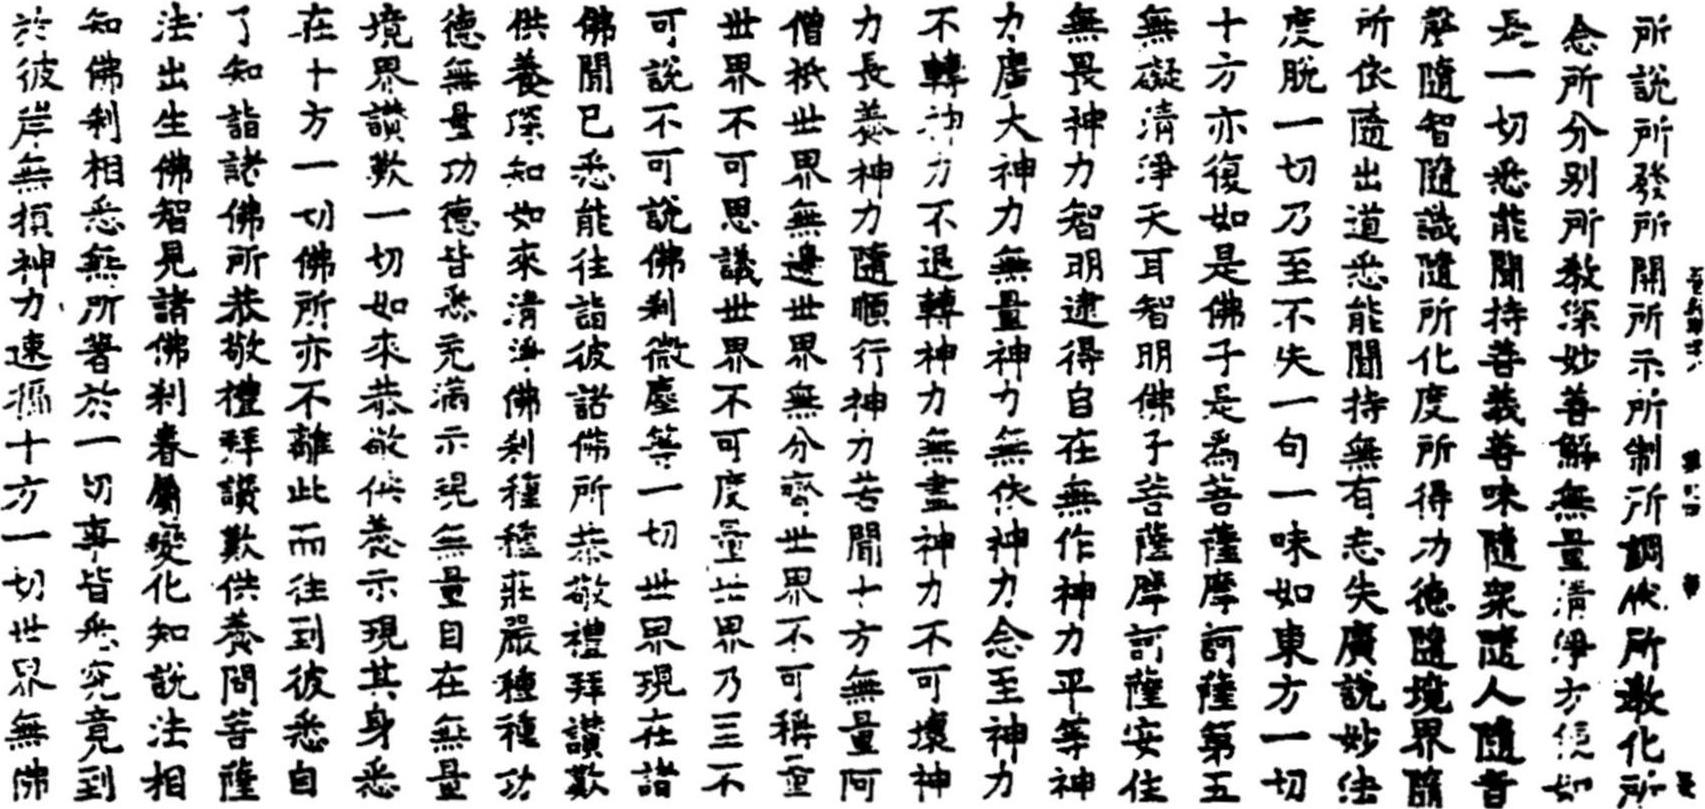 所說所發所開所示所制所調伏所教化所
念所分別所教深妙善解無量清淨方便如
長一切悉能聞持善義善味隨眾隨人隨音
聲隨智隨識隨所化度所得功德隨境界隨
所依隨出道悉能聞持無有忘失廣說妙法
度脫一切乃至不失一句一味如東方一切
十方亦復如是佛子是為菩薩摩訶薩第五
無礙清淨天耳智明佛子菩薩摩訶薩安住
無畏神力智明逮得自在無作神力平等神
力廣大神力無量神力無依神力念至神力
不轉神力不退轉神力無盡神力不可壞神
力長養神力隨順行神力若聞十方無量阿
僧祇世界無邊世界無分齊世界不可稱量
世界不可思議世界不可度量世界乃三不
可說不可說佛剎微塵等一切世界現在諸
佛聞已悉能往詣彼諸佛所恭敬禮拜讚歎
供養深知如來清淨佛剎種種莊嚴種種功
德無量功德皆悉充滿示現無量自在無量
境界讚歎一切如來恭敬供養示現其身悉
在十方一切佛所亦不離此而往到彼悉自
了知詣諸佛所恭敬禮拜讚歎供養問菩薩
法出生佛智見諸佛剎眷屬變化知說法相
知佛剎相悉無所著於一切事皆悉究竟到
於彼岸無損神力速搖十方一切世界無佛